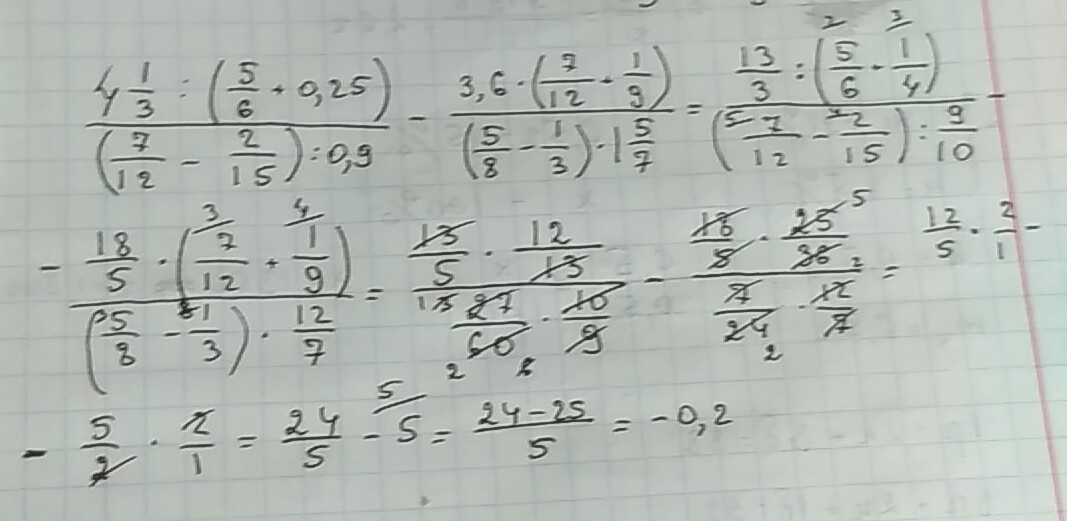 4 1/3 : (5/6 + 0,25) / (7/12 - 2/15) : 0,9 - 3,6 · (7/12 + 1/9) / (5/8 - 1/3) · 1 5/7 = 13/3 : (5/6 + 1/4) / (7/12 - 2/15) : 9/10 -
- 18/5 · (7/12 + 1/9) / (5/8 - 1/3) · 12/7 = 13/5 · 12/13 / 27/60 · 10/9 - 18/5 · 25/36 / 7/24 · 12/7 = 12/5 · 2/1 -
- 5/2 · 2/1 = 24/5 - 5 = 24-25/5 = -0,2